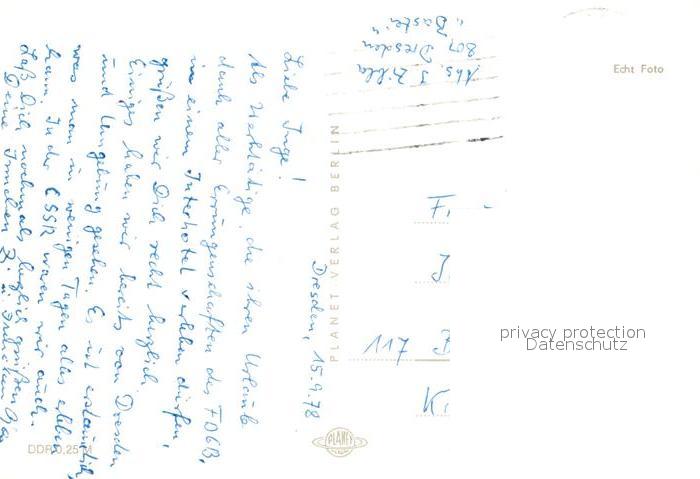 Dresden, 15.9.78
Liebe Inge!
Als Werktätige, die ihren Urlaub
dank aller Errungenschaften des FDGB,
in einem Interhotel verleben dürfen,
grüßen wir Dich recht herzlich.
Einiges haben wir bereits von Dresden
und Umgebung gesehen. Es ist erstaunlich,
was man in wenigen Tagen alles erleben
kann. In der ČSSR waren wir auch.
Laß Dich nochmals herzlich grüßen
Deine
Abs.
801 Dresden
"Bastei"
F
117 B
PLANET VERLAG BERLIN
PLANET
Echt Foto
DDR 0,25 M
privacy protection
Datenschutz